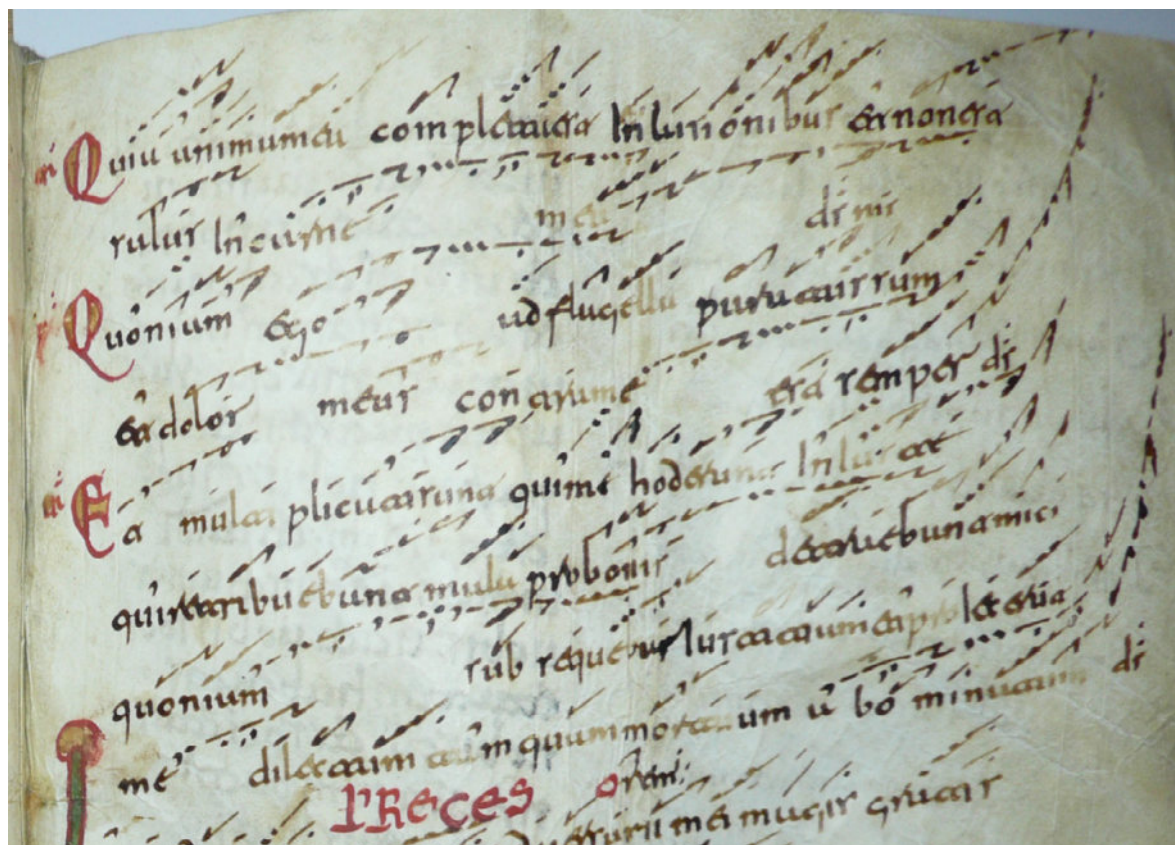 Quia anima mea completa est Inlusionibus et non est
salus In carne mea ds ns
Quoniam ego ad flagella paratus sum
et dolor meus contra me est semper ds
Et multiplicati sunt qui me hoderunt
qui retribuebant mala pro bonis detraebant mici
quoniam subsequebar Iustitiam et
me dilectum tamquam mortuum abominatum ds
PRECES
mei